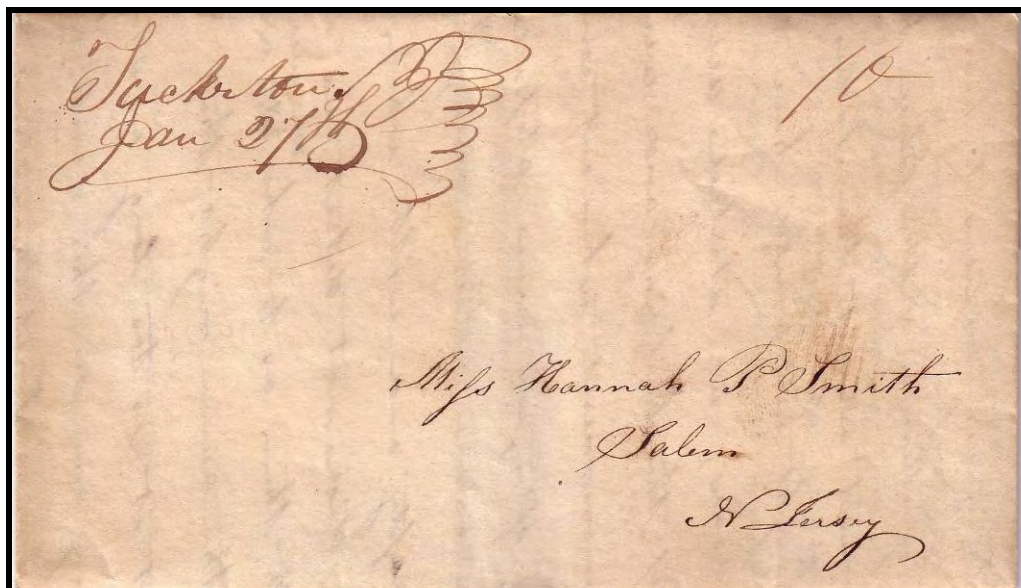 Tuckerton.
10
Jan 27th
Miſs Hannah P Smith
Salem
N Jersey